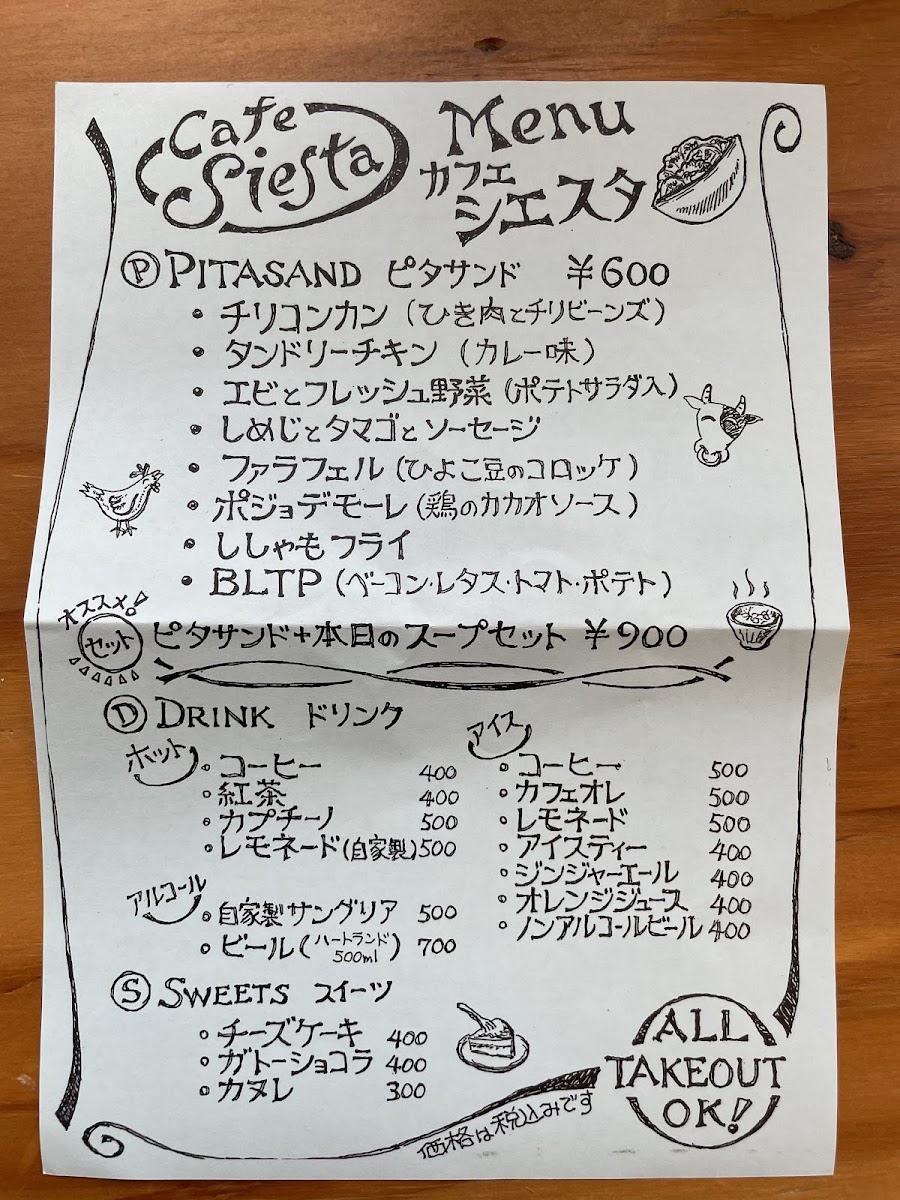 Cafe Siesta
Menu
カフェ
シエスタ
Ⓟ PITASAND ピタサンド ¥600
• チリコンカン (ひき肉とチリビーンズ)
• タンドリーチキン (カレー味)
• エビとフレッシュ野菜 (ポテトサラダ入)
• しめじとタマゴとソーセージ
• ファラフェル (ひよこ豆のコロッケ)
• ポジョデモーレ (鶏のカカオソース)
• ししゃもフライ
• BLTP (ベーコン・レタス・トマト・ポテト)
オススメ!
セット ピタサンド+本日のスープセット ¥900
Ⓓ DRINK ドリンク
ホット
• コーヒー 400
• 紅茶 400
• カプチーノ 500
• レモネード(自家製) 500
アルコール
• 自家製サングリア 500
• ビール (ハートランド 500ml) 700
アイス
• コーヒー 500
• カフェオレ 500
• レモネード 500
• アイスティー 400
• ジンジャーエール 400
• オレンジジュース 400
• ノンアルコールビール 400
Ⓢ SWEETS スイーツ
• チーズケーキ 400
• ガトーショコラ 400
• カヌレ 300
価格は税込みです
ALL
TAKEOUT
OK!